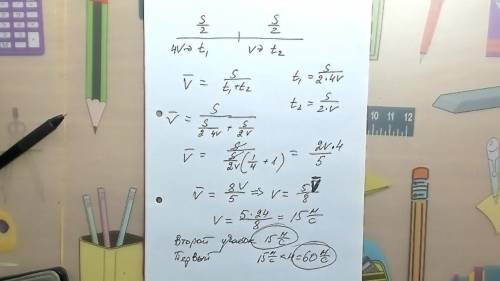 S/2 S/2
4V⇒ t₁ V⇒ t₂
V̄ = S/(t₁+t₂) t₁ = S/(2·4V)
t₂ = S/(2·V)
V̄ = S/(S/(2·4V) + S/(2V))
V̄ = S/(S/(2V)(1/4 + 1)) = 2V·4/5
V̄ = 8V/5 ⇒ V = 5V̄/8
V = 5·24/8 = 15 м/с
Второй участок 15 м/с
Первый 15 м/с × 4 = 60 м/с